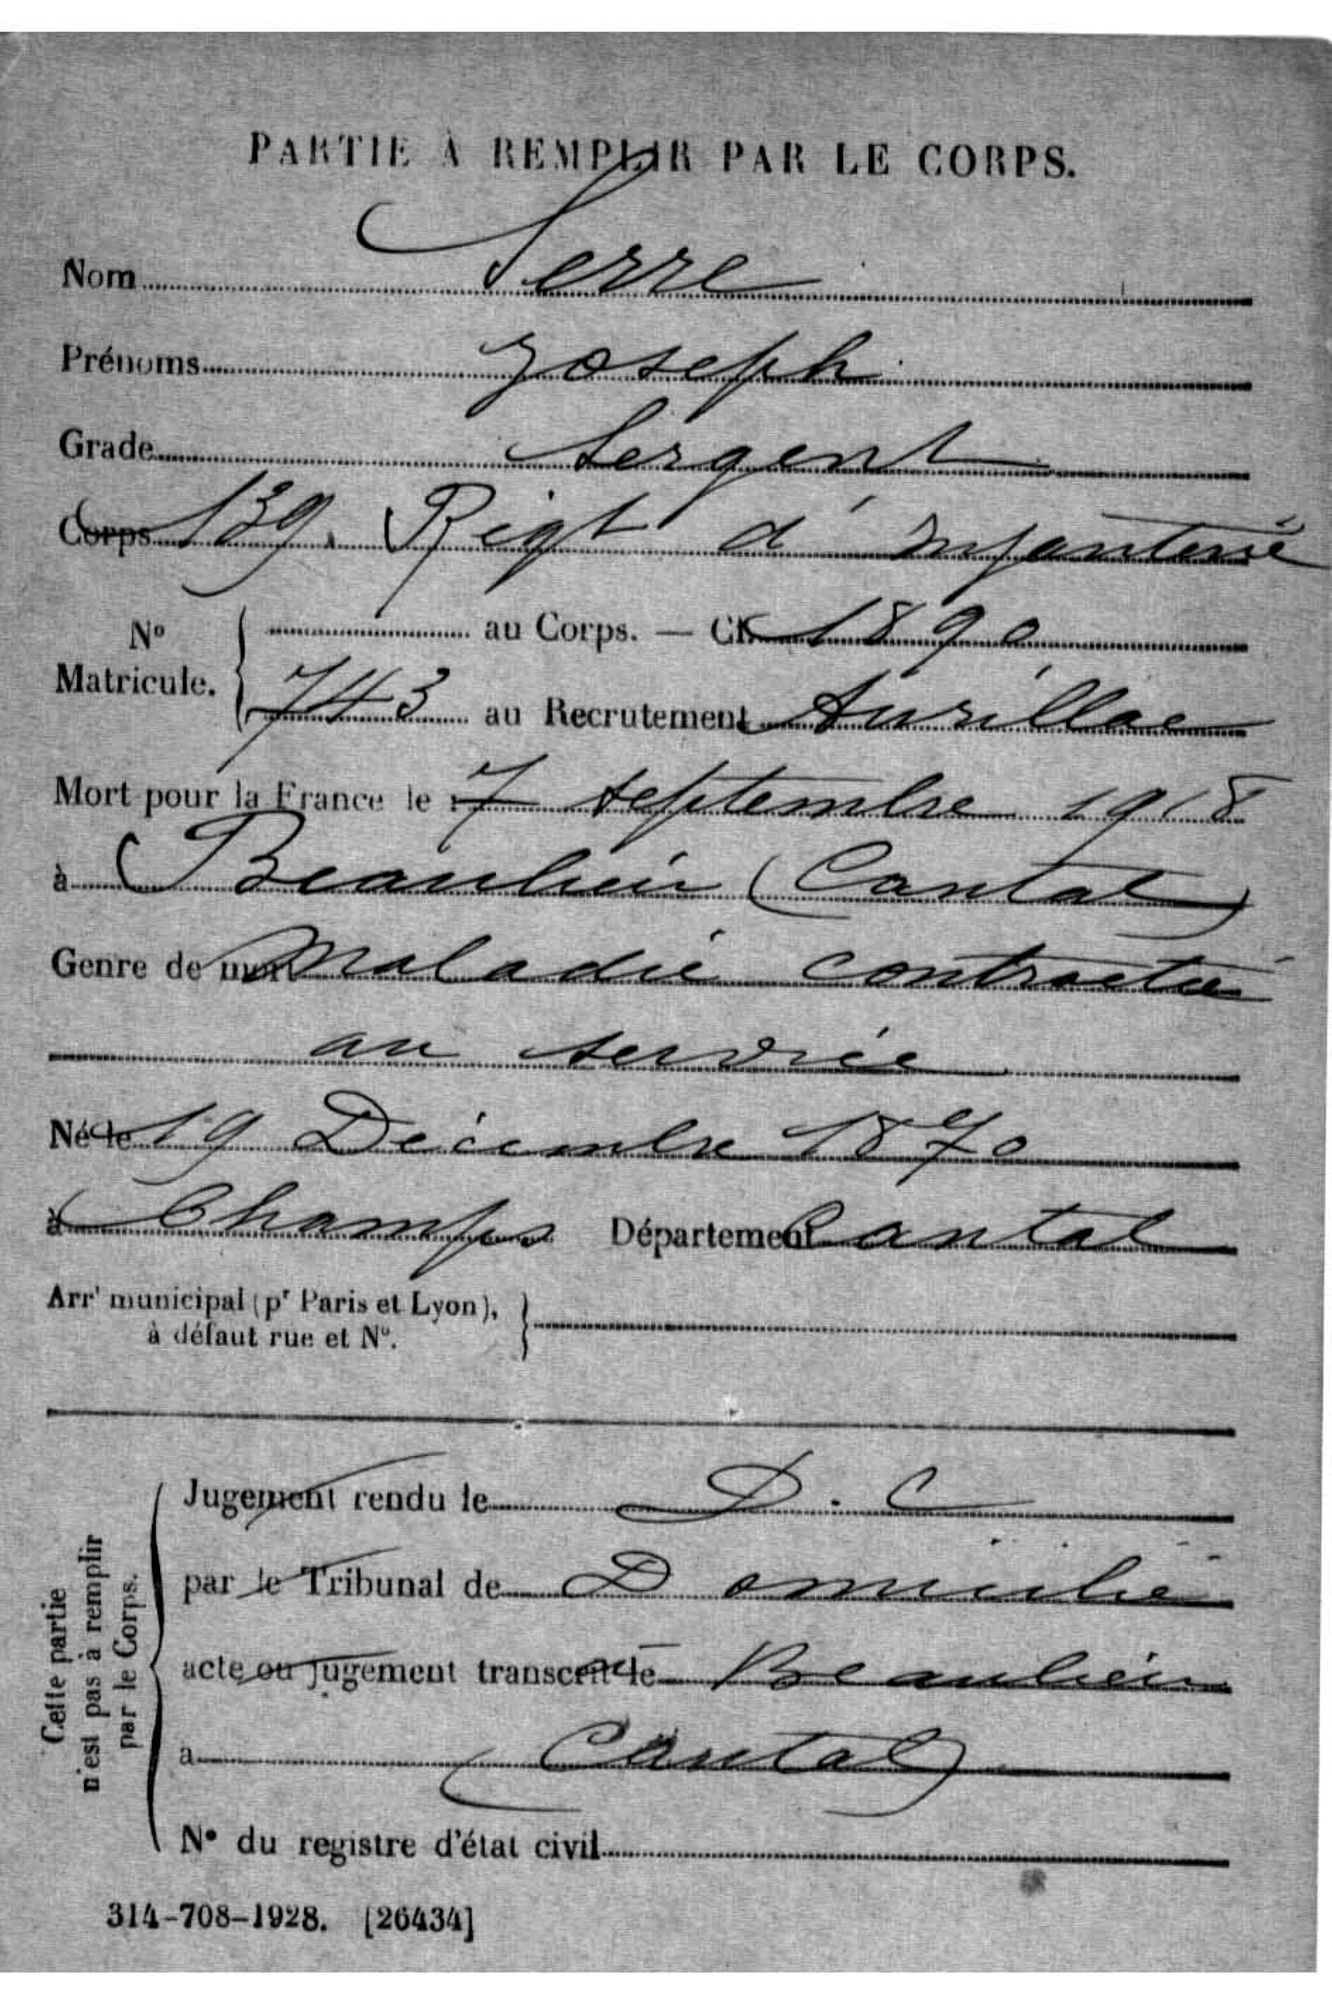 PARTIE À REMPLIR PAR LE CORPS.
Nom Serre
Prénoms Joseph
Grade Sergent
Corps 139. Régt d'Infanterie
N° Matricule. au Corps. — Cl. 1890
743 au Recrutement Aurillac
Mort pour la France le 7 septembre 1918
à Beaulieu (Cantal)
Genre de mort maladie contractée
au service
Né le 19 Décembre 1870
à Champs Département Cantal
Arrt municipal (pr Paris et Lyon),
à défaut rue et N°.
Cette partie n'est pas à remplir par le Corps.
Jugement rendu le D. C
par le Tribunal de Domicilié
acte ou jugement transcrit le Beaulieu
à (Cantal)
N° du registre d'état civil
314-708-1928. [26434]